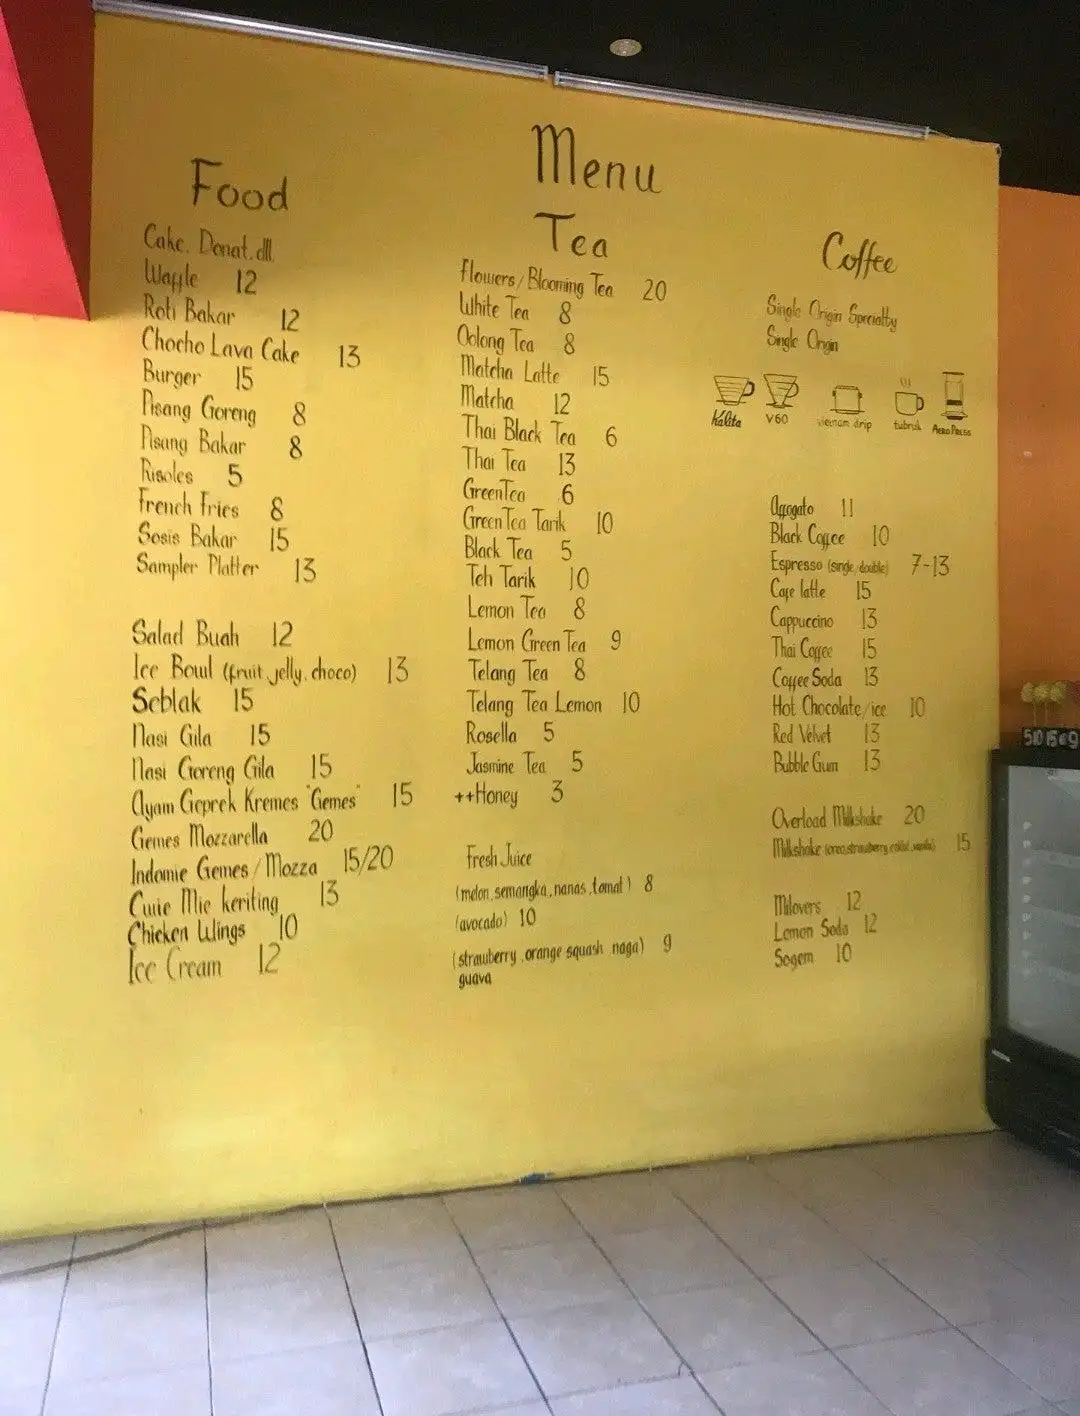 Menu
Food
Cake, Donat, dll.
Waffle 12
Roti Bakar 12
Chocho Lava Cake 13
Burger 15
Pisang Goreng 8
Pisang Bakar 8
Risoles 5
French Fries 8
Sosis Bakar 15
Sampler Platter 13
Salad Buah 12
Ice Bowl (fruit, jelly, choco) 13
Seblak 15
Nasi Gila 15
Nasi Goreng Gila 15
Ayam Geprek Kremes "Gemes" 15
Gemes Mozzarella 20
Indomie Gemes/Mozza 15/20
Cwie Mie keriting 13
Chicken Wings 10
Ice Cream 12
Tea
Flowers/Blooming Tea 20
White Tea 8
Oolong Tea 8
Matcha Latte 15
Matcha 12
Thai Black Tea 6
Thai Tea 13
GreenTea 6
GreenTea Tarik 10
Black Tea 5
Teh Tarik 10
Lemon Tea 8
Lemon Green Tea 9
Telang Tea 8
Telang Tea Lemon 10
Rosella 5
Jasmine Tea 5
++Honey 3
Fresh Juice
(melon, semangka, nanas, tomat) 8
(avocado) 10
(strawberry, orange squash naga) 9
guava
Coffee
Single Origin Specialty
Single Origin
Kalita V60 vietnam drip tubruk AEROPRESS
Affogato 11
Black Coffee 10
Espresso (single/double) 7-13
Cafe latte 15
Cappuccino 13
Thai Coffee 15
Coffee Soda 13
Hot Chocolate/ice 10
Red Velvet 13
Bubble Gum 13
Overload Milkshake 20
Milkshake (oreo, strawberry, coklat, vanila) 15
Milovers 12
Lemon Soda 12
Sogem 10